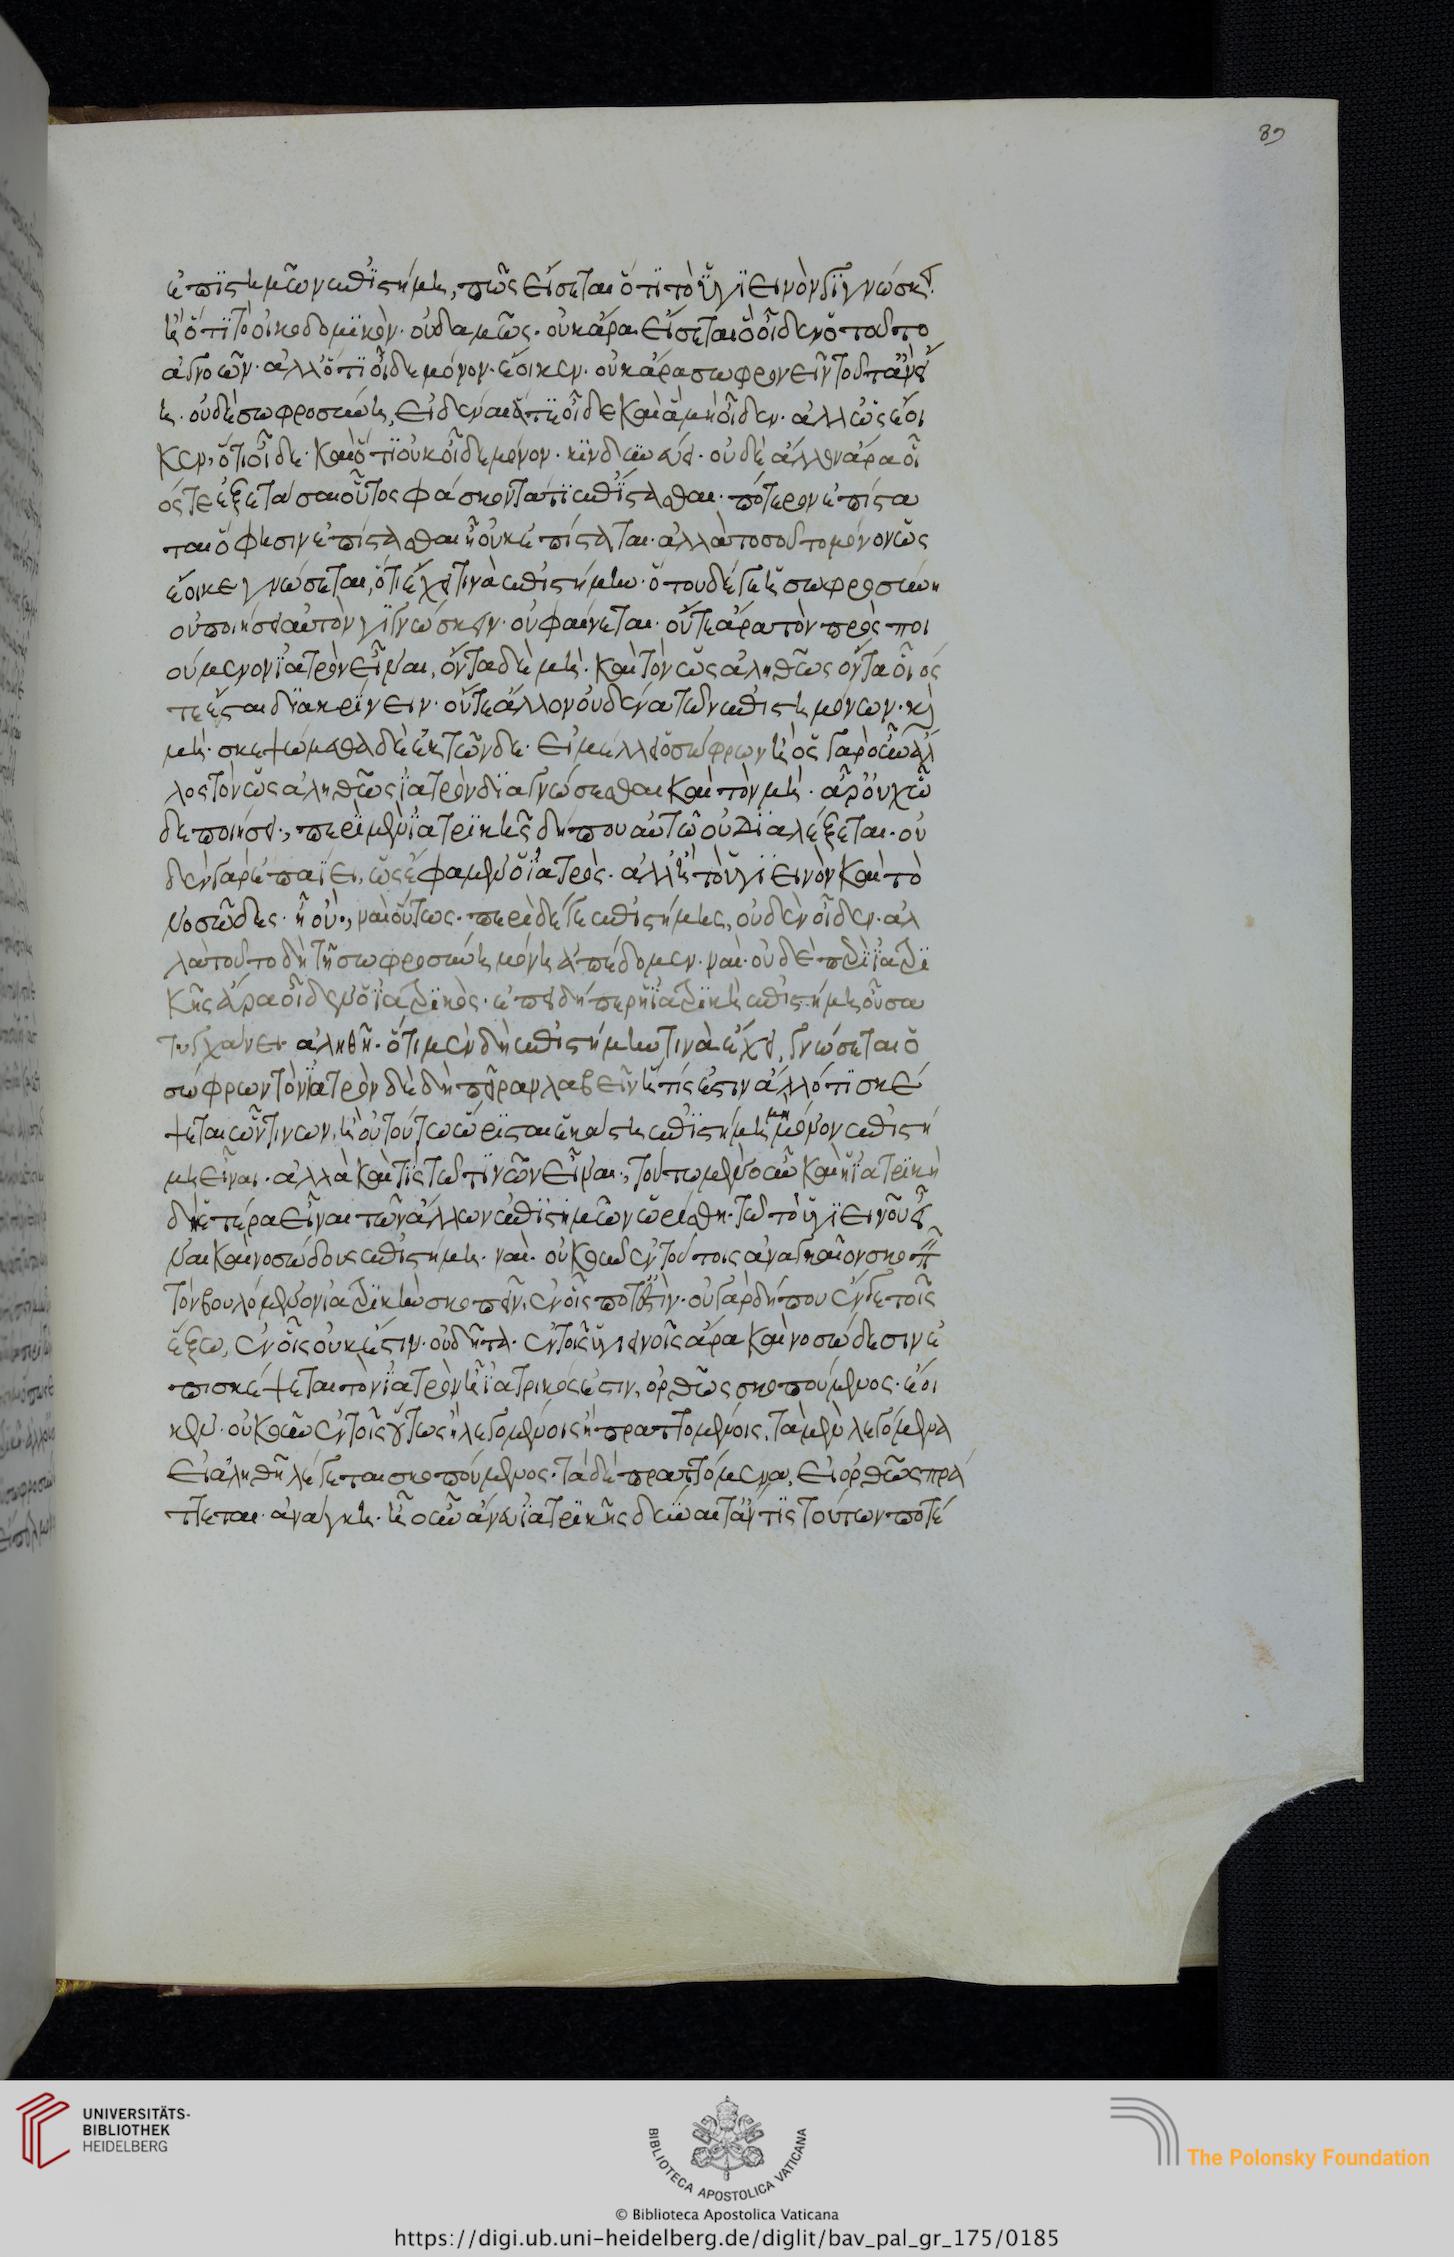 ἐπιστημῶν ἐπιστήμη, πῶς εἴσεται ὅτι τὸ ὑγιεινὸν γιγνώσκει.
ἢ ὅτι τὸ οἰκοδομικὸν· οὐδαμῶς· οὐκ ἄρα εἴσεται ὃ οἶδεν ὁ τοῦτο
ἀγνοῶν· ἀλλ' ὅτι οἶδε μόνον· ἔοικεν· οὐκ ἄρα σωφρονεῖν τοῦτ' ἂν εἴ
η· οὐδὲ σωφροσύνη, εἰδέναι ἅ τε οἶδε καὶ ἃ μὴ οἶδεν· ἀλλ' ὡς ἔοι
κεν, ὅτι οἶδε· καὶ ὅτι οὐκ οἶδε μόνον· κινδυνεύει· οὐδὲ ἄλλον ἄρα οἷ
ός τε ἐξετάσαι οὗτος φάσκοντά τι ἐπίστασθαι· πότερον ἐπίστα
ται ὅ φησιν ἐπίστασθαι ἢ οὐκ ἐπίσταται· ἀλλὰ τοσοῦτο μόνον ὡς
ἔοικε γνώσεται, ὅτι ἔχει τινὰ ἐπιστήμην· ὅτου δέ γε ἡ σωφροσύνη
οὐ ποιήσει αὐτὸν γιγνώσκειν· οὐ φαίνεται· οὔτε ἄρα τὸν προσποι
ούμενον ἰατρὸν εἶναι, ὄντα δὲ μὴ· καὶ τὸν ὡς ἀληθῶς ὄντα οἷός
τε ἔσται διακρίνειν· οὔτε ἄλλον οὐδένα τῶν ἐπιστημόνων· καὶ
μὴ· σκεψώμεθα δὲ ἐκ τῶνδε· εἰ μέλλει ὁ σώφρων ἢ ὃς γὰρ οὖν ἄλ
λος τὸν ὡς ἀληθῶς ἰατρὸν διαγνώσεσθαι καὶ τὸν μὴ· ἆρ' οὐχ ὧ
δε ποιήσει·, περὶ μὲν ἰατρικῆς δήπου αὐτῷ οὐ διαλέξεται· οὐ
δὲν γὰρ ἐπαΐει, ὡς ἔφαμεν ὁ ἰατρὸς· ἀλλ' ἢ τὸ ὑγιεινὸν καὶ τὸ
νοσῶδες· ἢ οὐ·, ναὶ οὕτως· περὶ δέ γε ἐπιστήμης, οὐδὲν οἶδεν· ἀλ
λὰ τοῦτο δὴ τῇ σωφροσύνῃ μόνῃ ἀπέδομεν· ναὶ· οὐδὲ περὶ ἰατρι
κῆς ἄρα οἶδεν ὁ ἰατρικὸς· ἐπειδήπερ ἡ ἰατρικὴ ἐπιστήμη οὖσα
τυγχάνει· ἀληθῆ· ὅτι μὲν δὴ ἐπιστήμην τινὰ ἔχει, γνώσεται ὁ
σώφρων τὸν ἰατρὸν δὲ δὴ πεῖραν λαβεῖν ἥτις ἐστιν ἄλλό τι σκέ
ψεται ὧντινων, ἢ οὐ τούτῳ ὥρισται ἑκάστη ἐπιστήμη μὴ μόνον ἐπιστή
μη εἶναι· ἀλλὰ καὶ τὶς τῷ τινῶν εἶναι·, τούτῳ μὲν οὖν καὶ ἡ ἰατρικὴ
δὴ ἑτέρα εἶναι τῶν ἄλλων ἐπιστημῶν ὡρίσθη· τῷ τὸ ὑγιεινοῦ εἶ
ναι καὶ νοσώδους ἐπιστήμη· ναὶ· οὐκοῦν ἐν τούτοις ἀναγκαῖον σκοπεῖν
τὸν βουλόμενον ἰατρικὴν σκοπεῖν, ἐν οἷς ποτ' ἔστιν· οὐ γὰρ δήπου ἔν γε τοῖς
ἔξω, ἐν οἷς οὐκ ἔστιν· οὐ δῆτα· ἐν τοῖς ὑγιεινοῖς ἄρα καὶ νοσώδεσιν ἐ
πισκέψεται τὸν ἰατρὸν ᾗ ἰατρικός ἐστιν, ὀρθῶς σκοπούμενος· ἔοι
κεν· οὐκοῦν ἐν τοῖς οὕτως ἢ λεγομένοις ἢ πραττομένοις, τὰ μὲν λεγόμενα
εἰ ἀληθῆ λέγεται σκοπούμενος· τὰ δὲ πραττόμενα, εἰ ὀρθῶς πρά
ττεται· ἀνάγκη· ἦ οὖν ἄνευ ἰατρικῆς δύναιτ' ἄν τις τούτων ποτέ
UNIVERSITÄTS-
BIBLIOTHEK
HEIDELBERG
BIBLIOTECA APOSTOLICA VATICANA
The Polonsky Foundation
© Biblioteca Apostolica Vaticana
https://digi.ub.uni-heidelberg.de/diglit/bav_pal_gr_175/0185